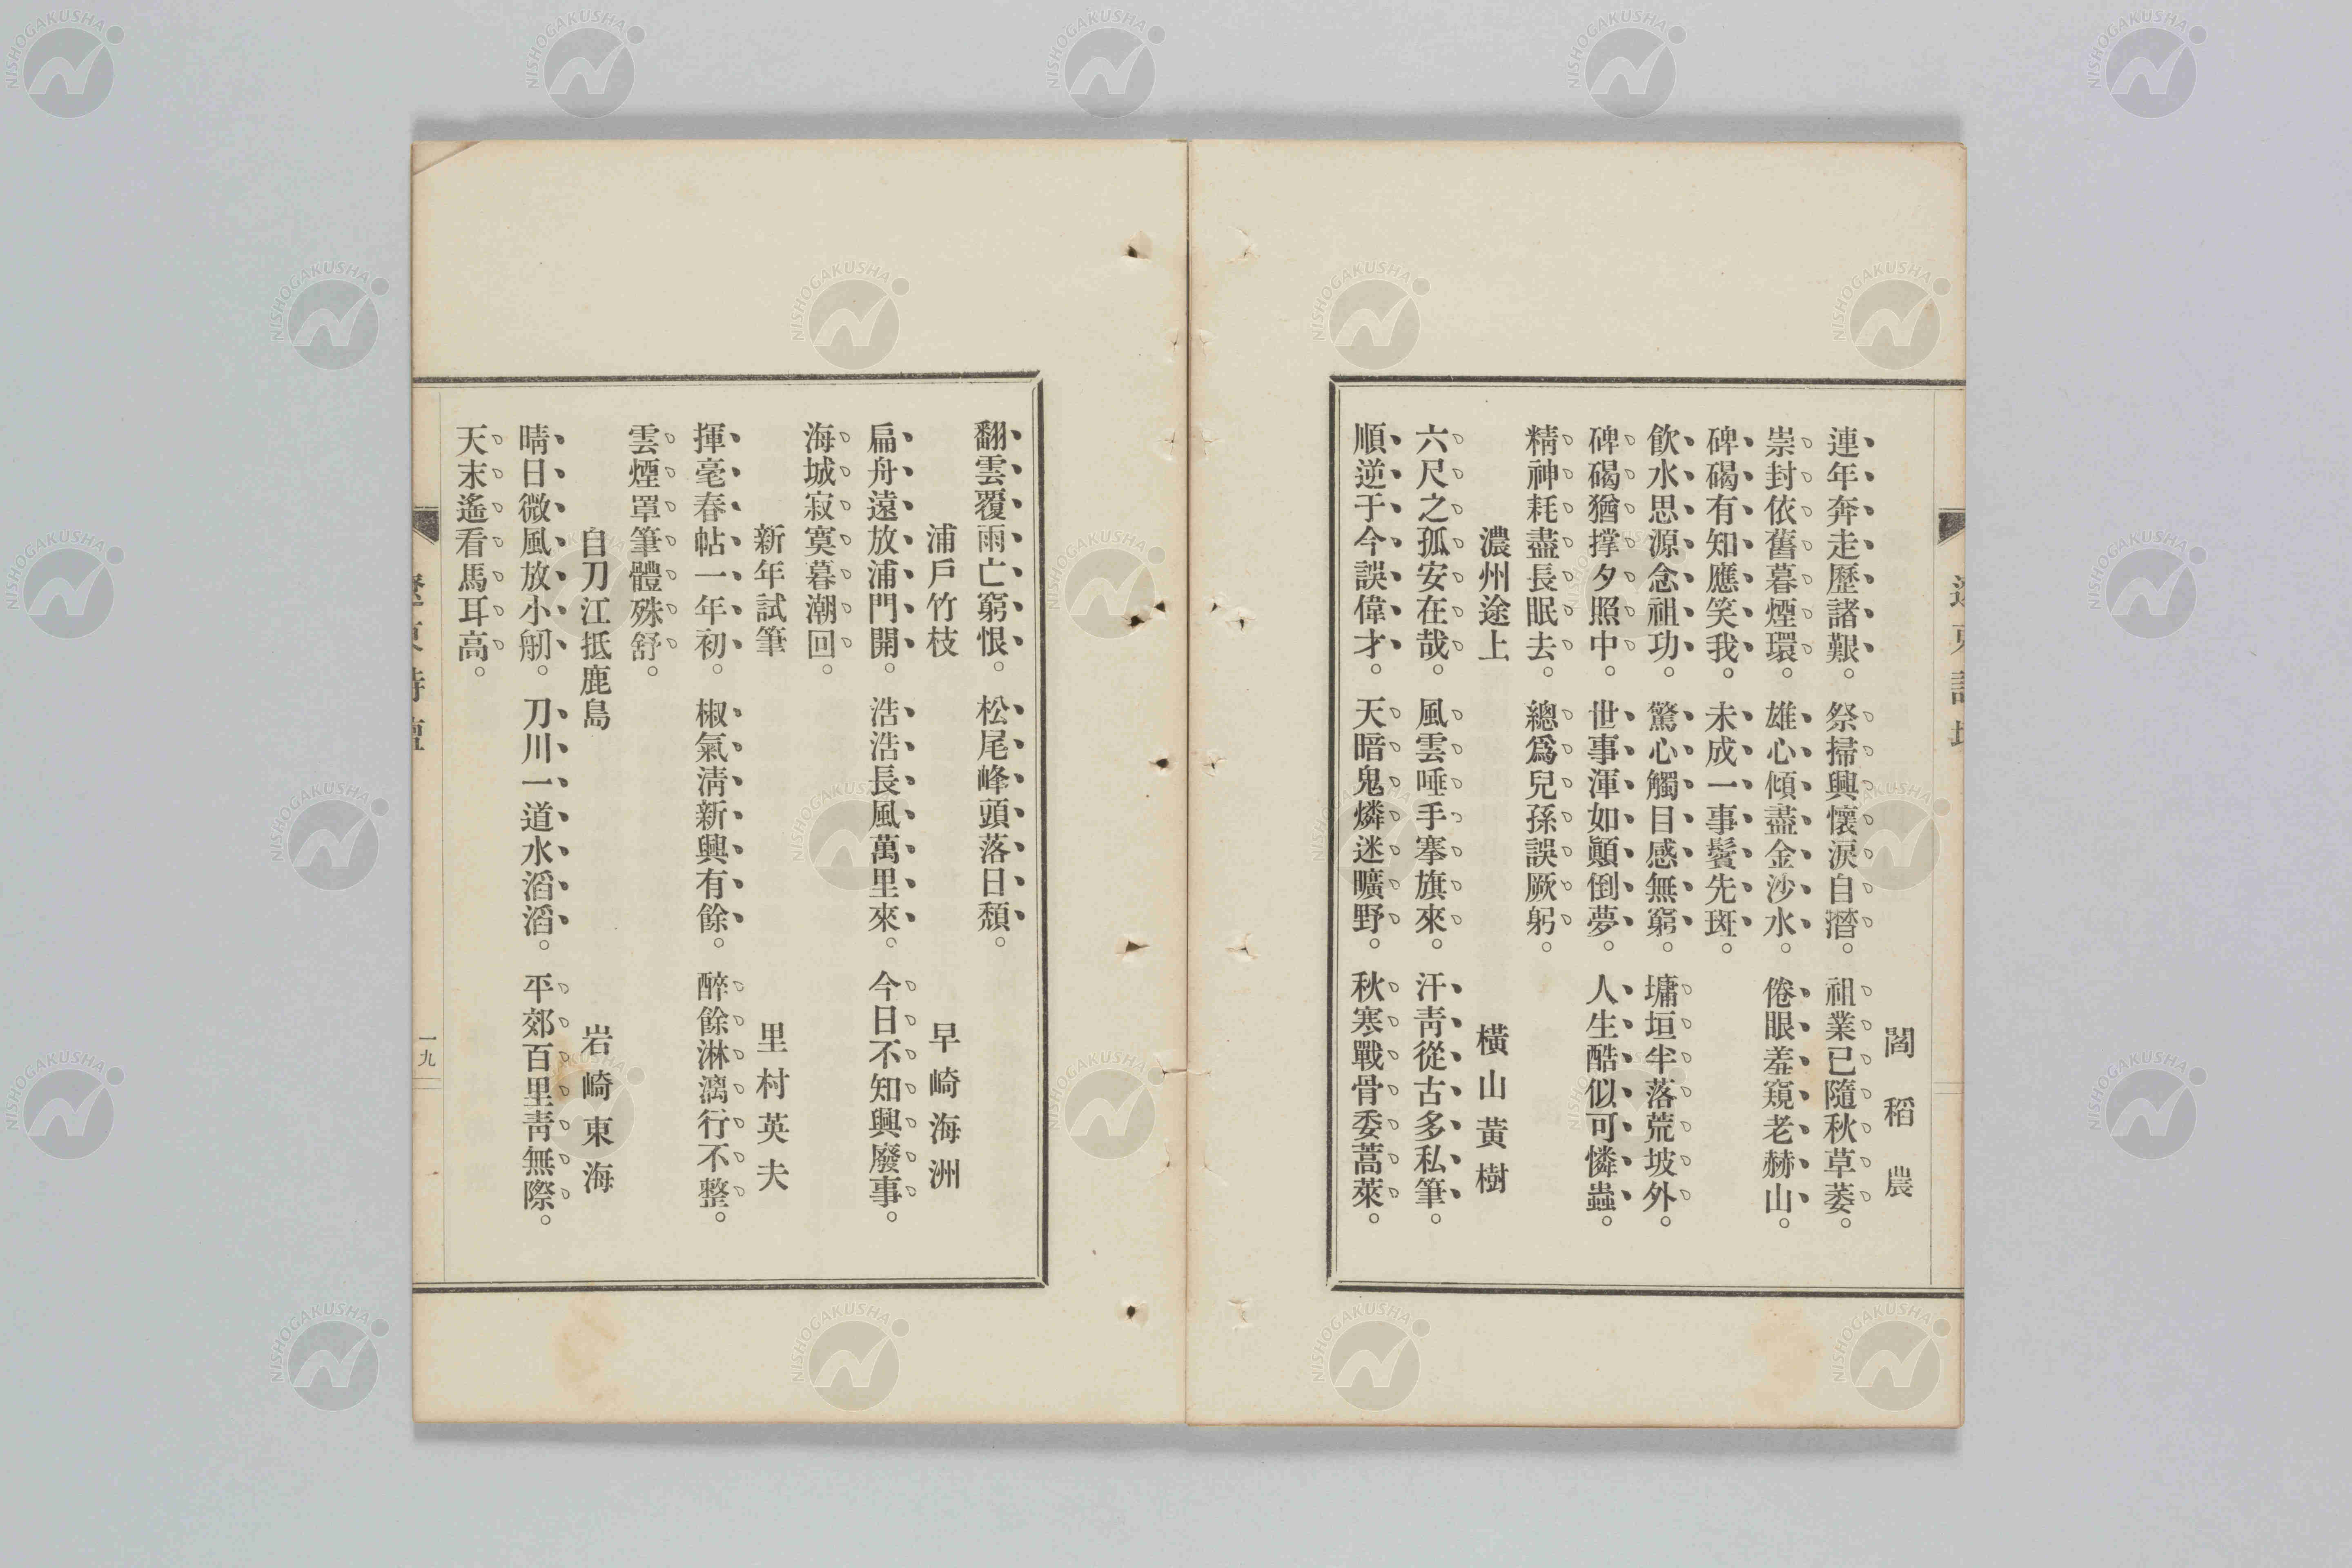 閻稻農
連年奔走歷諸艱。祭掃興懷淚自潸。祖業已隨秋草萎。
崇封依舊暮煙環。雄心傾盡金沙水。倦眼羞窺老赫山。
碑碣有知應笑我。未成一事鬢先斑。
飮水思源念祖功。驚心觸目感無窮。墉垣半落荒坡外。
碑碣猶撑夕照中。世事渾如顚倒夢。人生酷似可憐蟲。
精神耗盡長眠去。總爲兒孫誤厥躬。
濃州途上 橫山黃樹
六尺之孤安在哉。風雲唾手搴旗來。汗靑從古多私筆。
順逆于今誤偉才。天暗鬼燐迷曠野。秋寒戰骨委蒿萊。
翻雲覆雨亡窮恨。松尾峰頭落日頹。
浦戶竹枝 早崎海洲
扁舟遠放浦門開。浩浩長風萬里來。今日不知興廢事。
海城寂寞暮潮回。
新年試筆 里村英夫
揮毫春帖一年初。椒氣淸新興有餘。醉餘淋漓行不整。
雲煙罩筆體殊舒。
自刀江抵鹿島 岩崎東海
晴日微風放小舠。刀川一道水滔滔。平郊百里靑無際。
天末遙看馬耳高。
一九
NISHOGAKUSHA